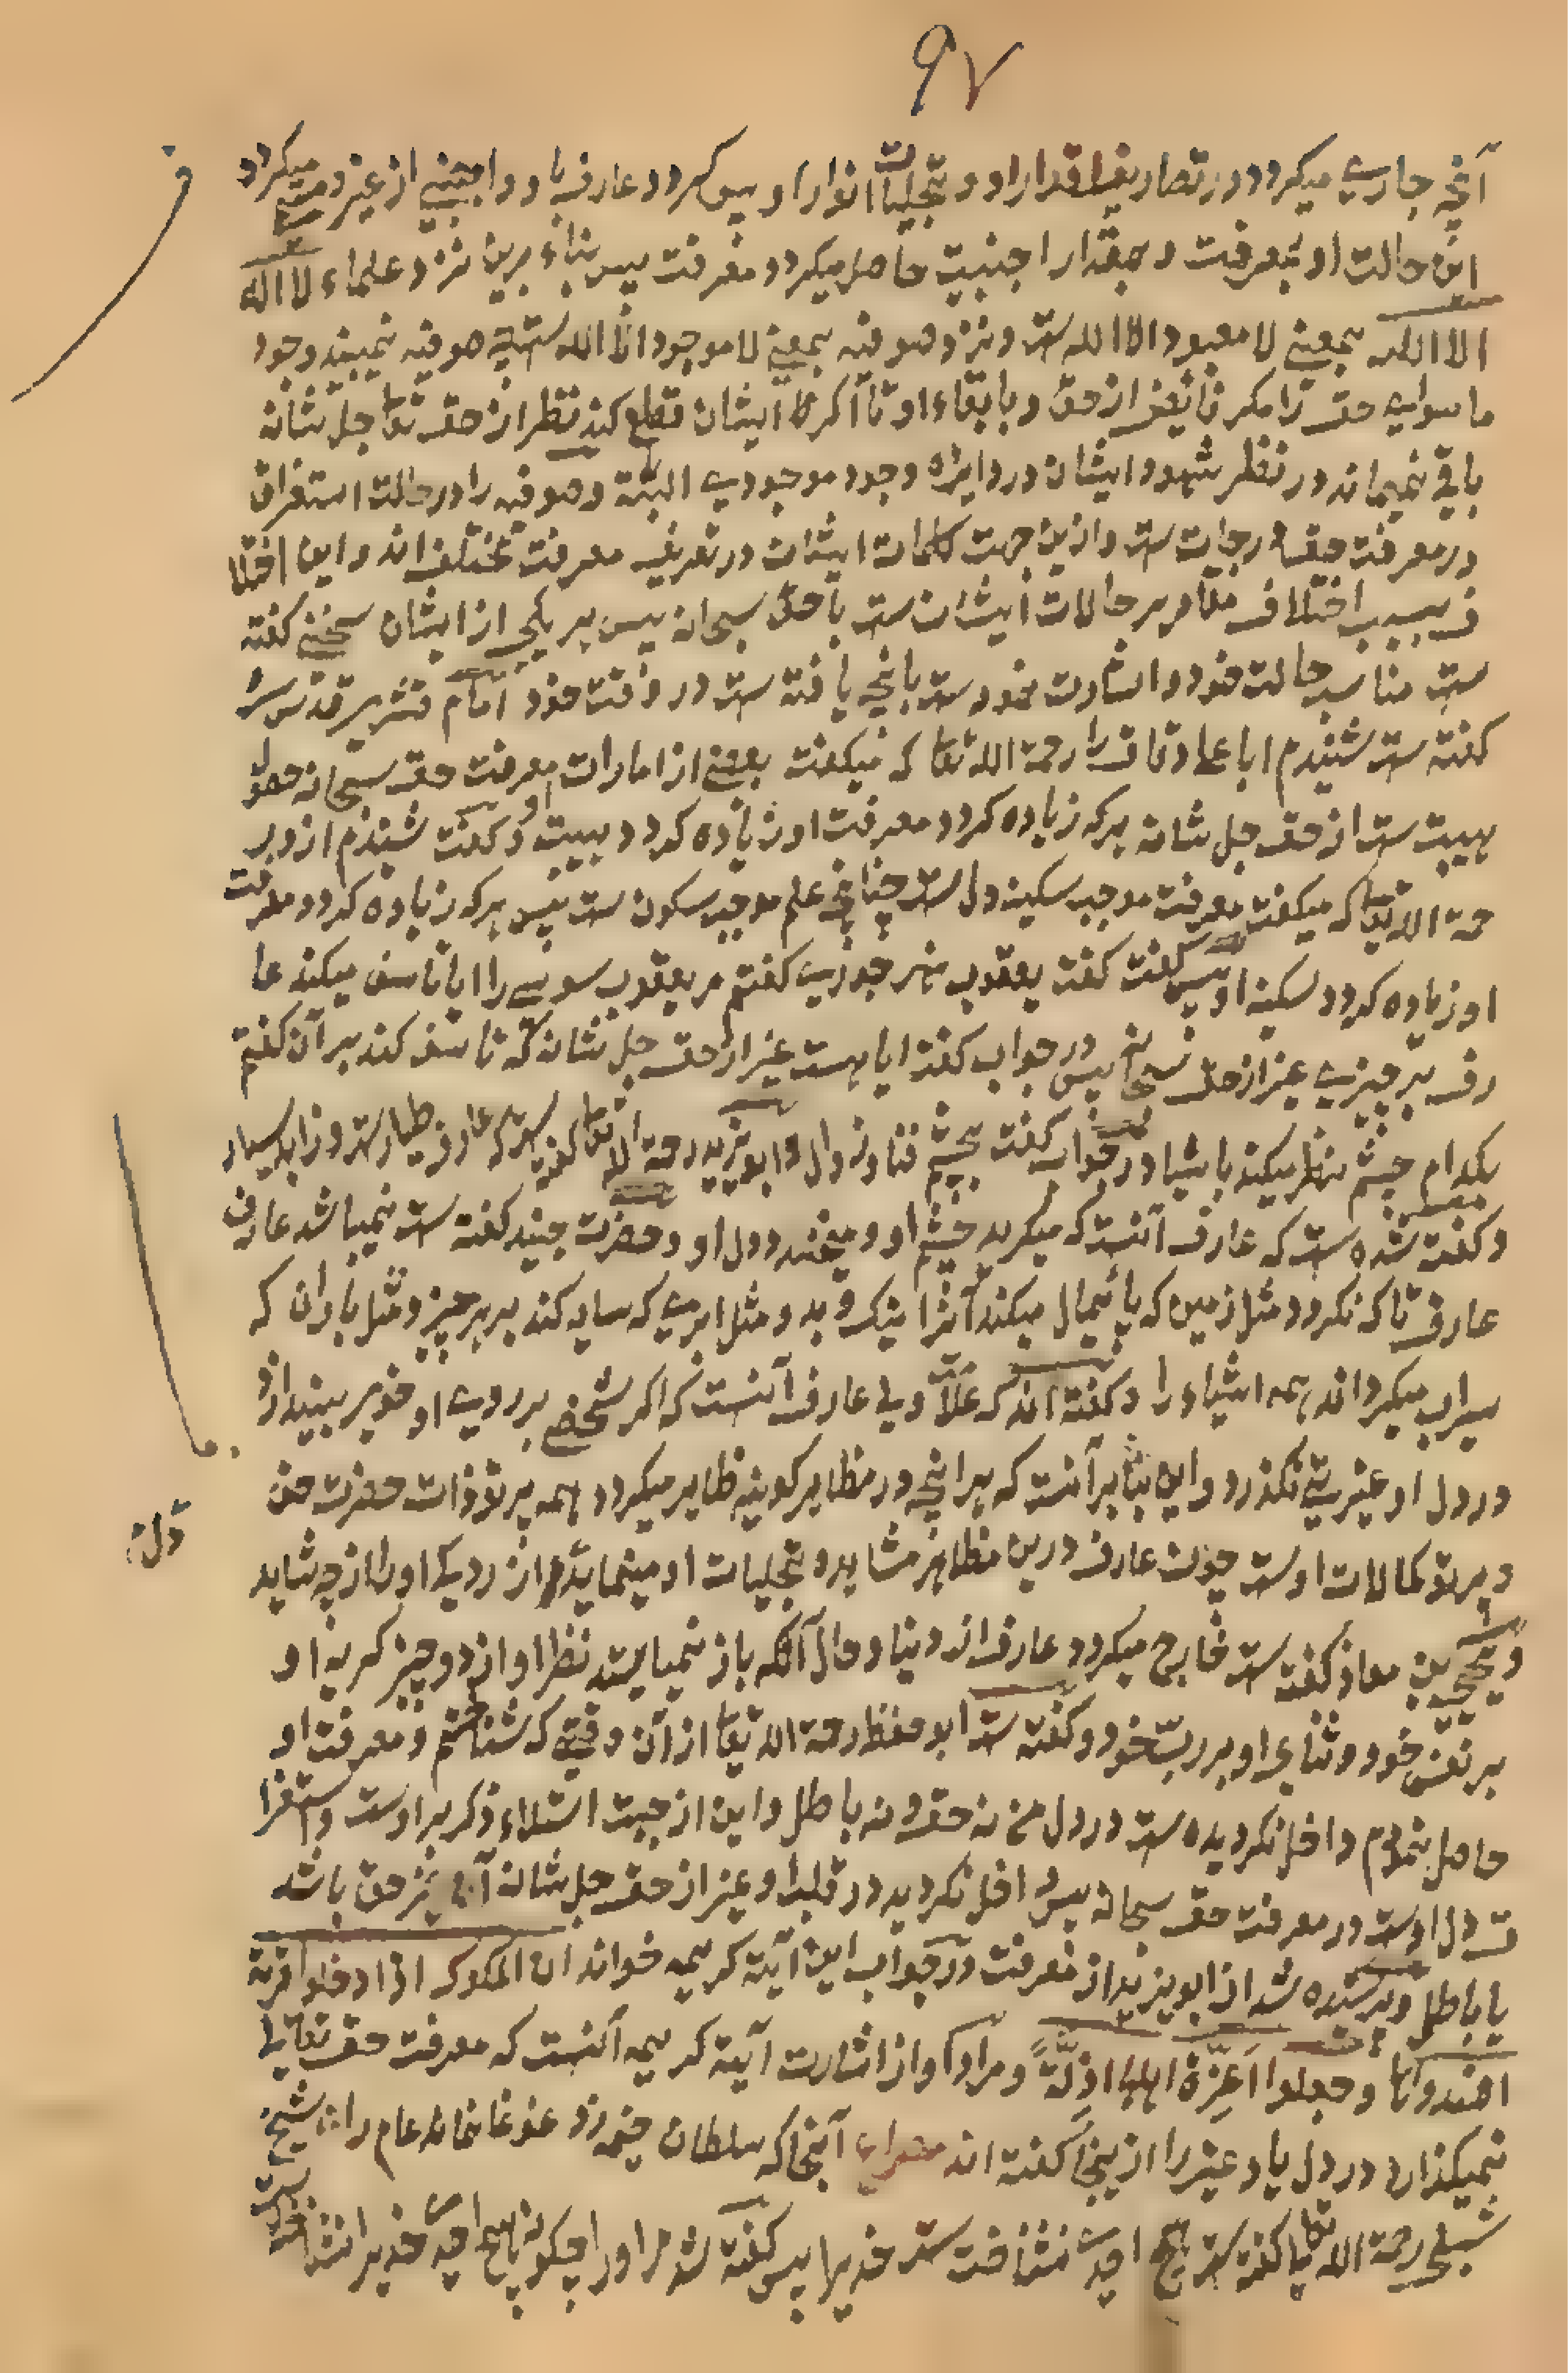 ۹۷
آنچه جاری میکردد در تصاریف اقدار او و تجلیات انوار او پس کردد عارف باو و اجنبی از غیر و مسمی میکردد
این حالت او بمعرفت و بمقدار اجنبیت حاصل میکردد معرفت پس بناء برین نزد علماء لا اله
الا الله بمعنی لا معبود الا الله ست و نزد صوفیه بمعنی لا موجود الا الله ست چه صوفیه نمیبیند وجود
ماسوای حق را مکر ناشی از حق و بابقاء او تا آکر کاه ایشان قطع کند نظر از حق تعا جل شانه
باقی نمیماند در نظر شهود ایشان در دایره وجود موجودی البته و صوفیه را در حالت استغراق
در معرفت حق درجات ست و ازین جهت کلمات ایشان در تعریف معرفت مختلف اند و این اختلا
ف بسبب اختلاف مقادیر حالات ایشان ست با حق سبحانه پس هر یکی از ایشان سخنی کفته
ست مناسب حالت خود و اشارت نمودست بانچه یافته ست در وقت خود امام قشیری قدس سره
کفته ست شنیدم ابا علی دقاق را رحمة الله تعا که میکفت بعضی از امارات معرفت حق سبحانه حصول
هیبت ست از حق جل شانه هر که زیاده کردد معرفت او زیاده کردد هیبت او و کفت شنیدم از وی ر
حمة الله تعا که میکفت معرفت موجب سکینه دل ست چنانچه علم موجب سکون ست پس هر که زیاده کردد معرفت
او زیاده کردد سکینه او پس کفت کفت یعقوب نهرجوری کفتم مر یعقوب سوسی را ایا تاسف میکند عا
رف بر چیزی غیر از حق سبحانه پس در جواب کفت ایا هست غیر از حق جل شانه که تاسف کند بر آن کفتم
بکدام چشم نظر میکند باشیا در جواب کفت بچشم فنا و زوال و ابو یزید رحمة الله تعا کفته ست که عارف طیار ست و زاهد سیار
و کفته شده ست که عارف آنست که میکرید چشم او و میخندد دل او و حضرت جنید کفته ست نمیباشد عارف
عارف تا که نکردد مثل زمین که پائیمال میکند آنرا نیک و بد و مثل ابری که سایه کند بر هر چیز و مثل باران که
سیراب میکرداند همه اشیاء را و کفته اند که علامت ولی عارف آنست که اکر شخصی بر روی او خوی بیندازد
در دل او غیریتی نکذرد و این بنا بر آنست که هر آنچه در مظاهر کونیه ظاهر میکردد همه پرتو ذات حضرت حق
دل
و پرتو کمالات اوست چون عارف درین مظاهر مشاهده تجلیات او مینماید از ردی او را از چه شاید
و یحیی بن معاذ کفته ست خارج میکردد عارف از دنیا و حال آنکه باز نمیایستد نظر او از دو چیز کریه او
بر نفس خود و ثنای او بر رب خود و کفته ست ابو حفظ رحمة الله تعا از آن وقتی که شناختم و معرفت او
حاصل نمودم داخل نکردیده ست در دل من نه حق و نه باطل و این از جهت استلاء ذکر بر اوست و استغرا
ق دل اوست در معرفت حق سبحانه پس داخل نکردید در قلب او غیر از حق جل شانه آن غیر حق باشد
یا باطل و پرسیده شد از ابویزید از معرفت در جواب این آیة کریمه خواند ان الملوک اذا دخلوا قریة
افسدوها وجعلوا اَعِزَّةَ اهلها اذِلَّةً و مراد او از اشارت آیة کریمه آنست که معرفت حق تعالی
نمیکذارد در دل یاد غیر را ازینجا کفته اند مصراع آنجا که سلطان خیمه زد غوغا نماند عام را شیخ
شبلی رحمة الله تعا کفته ست هیچ احدی نشناخت ست خدیرا پس کفته شد مر او را چکونه هیچ احد خدیرا نشناخته ست